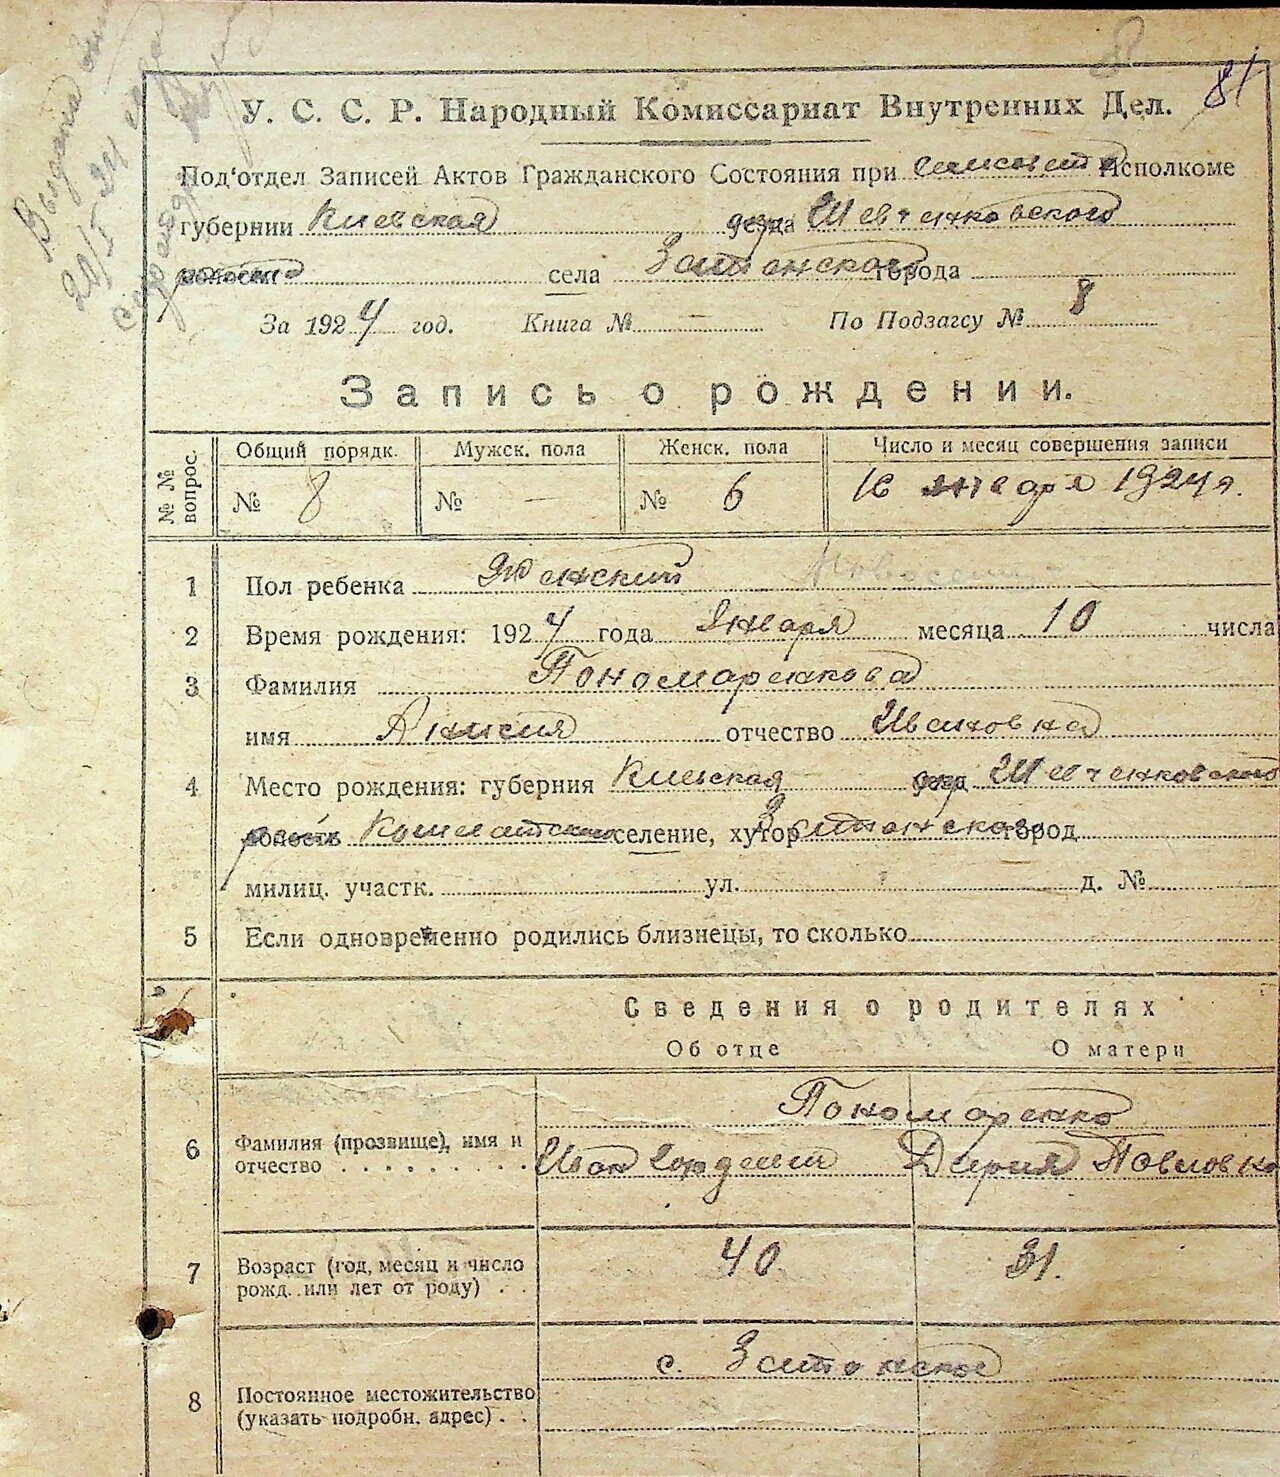 81
У. С. С. Р. Народный Комиссариат Внутренних Дел.
Под‘отдел Записей Актов Гражданского Состояния при Исполкоме
губернии Киевская уезда Шевченковского
волости села города
За 1924 год. Книга № — По Подзагсу № 8
Запись о рождении.
№ № вопрос. Общий порядк. Мужск. пола Женск. пола Число и месяц совершения записи
№ 8 № — № 6 16 января 1924 г.
1 Пол ребенка Женский
2 Время рождения: 1924 года Января месяца 10 числа
3 Фамилия Пономаренкова
имя Анисия отчество Ивановна
4 Место рождения: губерния Киевская уезд Шевченковского
волость селение, хутор город
милиц. участк. ул. д. №
5 Если одновременно родились близнецы, то сколько
Сведения о родителях
Об отце О матери
Пономаренко
6 Фамилия (прозвище), имя и
отчество . . . . . . . . . Иван Дария Павловна
7 Возраст (год, месяц и число
рожд. или лет от роду) . . 40 31.
с.
8 Постоянное местожительство
(указать подробн. адрес) . .